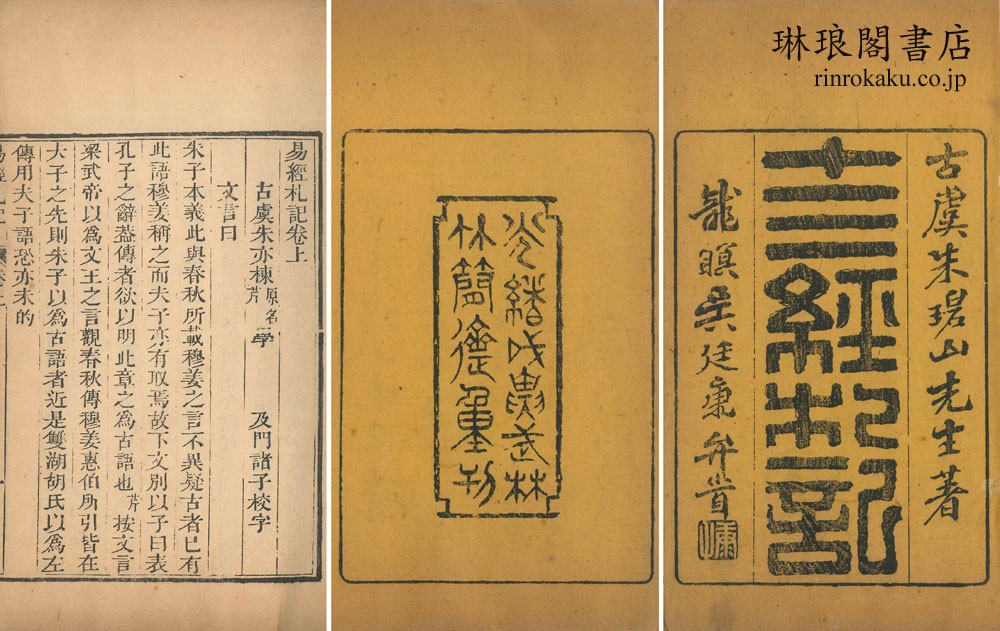 琳琅閣書店
rinrokaku.co.jp
古虞朱碧山先生著
十三經札記
龍瞑吳廷康弁首
光緒戊寅武林
竹簡齋重刊
易經札記卷上
古虞朱亦棟原名芹學 及門諸子校字
文言曰
朱子本義此與春秋所載穆姜之言不異疑古者已有
此語穆姜稱之而夫子亦有取焉故下文別以子曰表
孔子之辭葢傳者欲以明此章之爲古語也芹按文言
梁武帝以爲文王之言觀春秋傳穆姜惠伯所引皆在
夫子之先則朱子以爲古語者近是雙湖胡氏以爲左
傳用夫子語恐亦未的